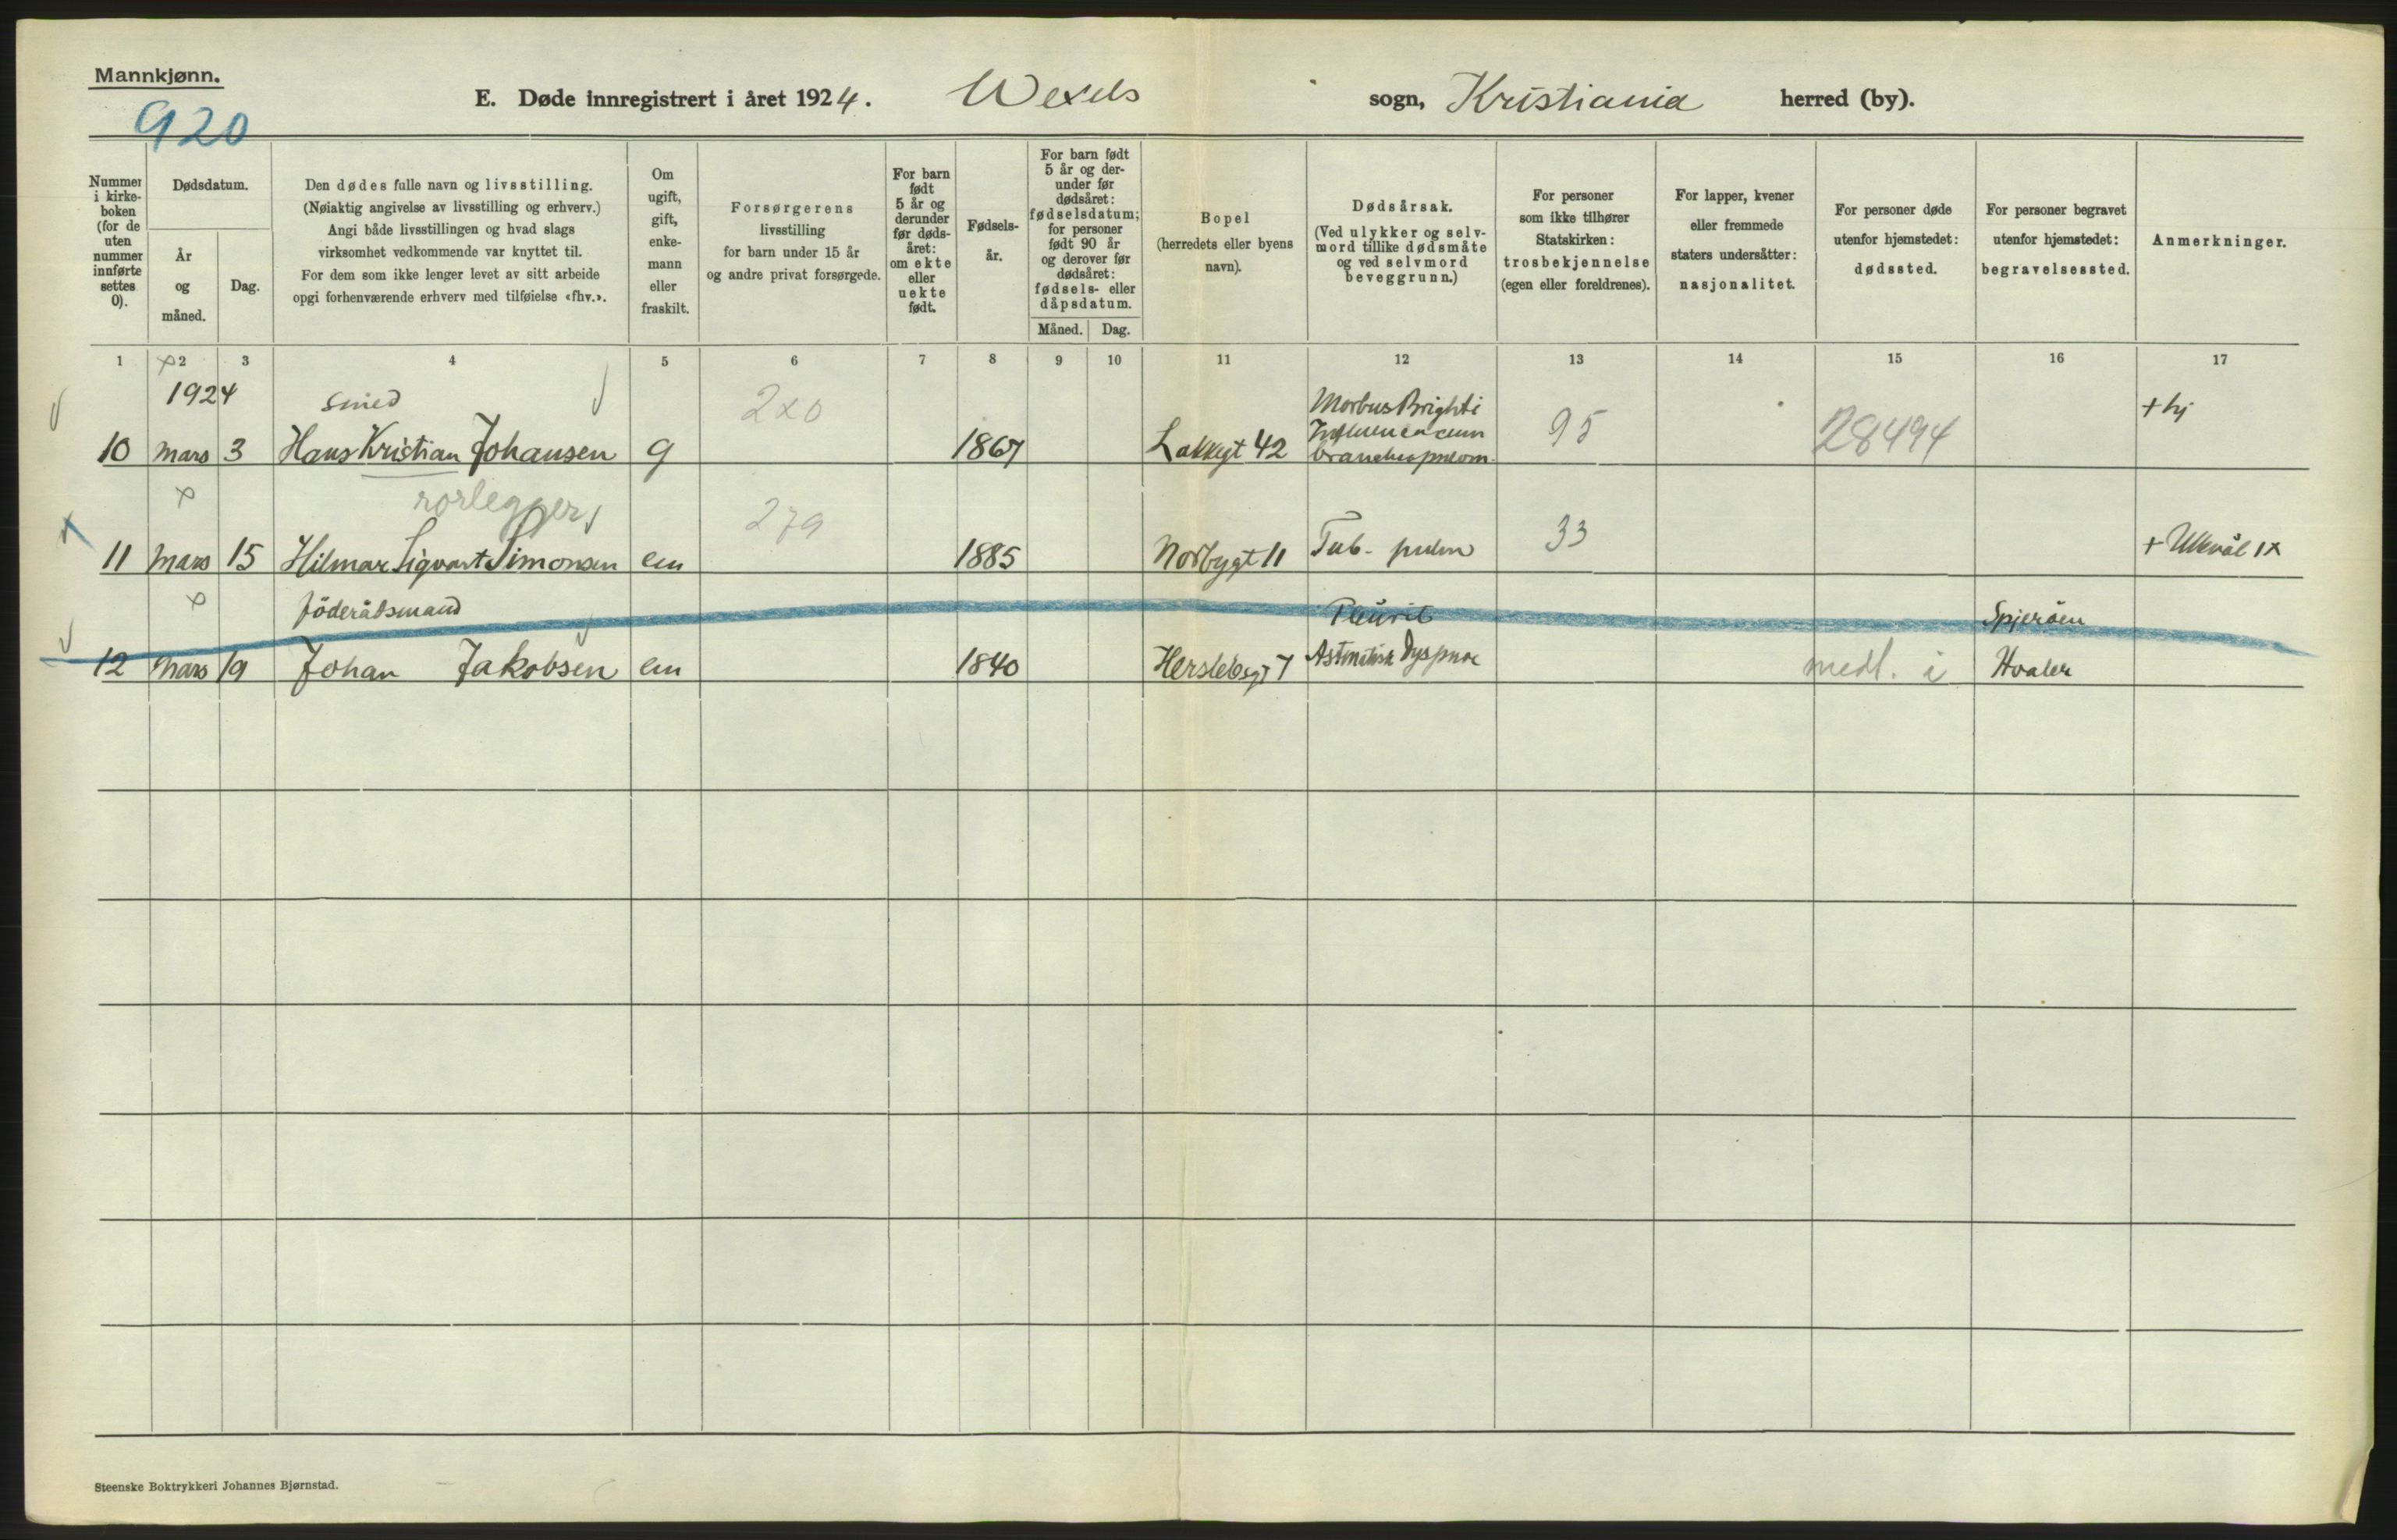 Mannkjønn.
920
E. Døde innregistrert i året 1924. Wexels sogn, Kristiania herred (by).
Nummer
i kirke-
boken
(for de
uten
nummer
innførte
settes
0).
Dødsdatum.
År
og
måned.
Dag.
Den dødes fulle navn og livsstilling.
(Nøiaktig angivelse av livsstilling og erhverv.)
Angi både livsstillingen og hvad slags
virksomhet vedkommende var knyttet til.
For dem som ikke lenger levet av sitt arbeide
opgi forhenværende erhverv med tilføielse «fhv.».
Om
ugift,
gift,
enke-
mann
eller
fraskilt.
Forsørgerens
livsstilling
for barn under 15 år
og andre privat forsørgede.
For barn
født
5 år og
derunder
før døds-
året:
om ekte
eller
uekte
født.
Fødsels-
år.
For barn født
5 år og der-
under før
dødsåret:
fødselsdatum;
for personer
født 90 år
og derover før
dødsåret:
fødsels- eller
dåpsdatum.
Måned. Dag.
Bopel
(herredets eller byens
navn).
Dødsårsak.
(Ved ulykker og selv-
mord tillike dødsmåte
og ved selvmord
beveggrunn.)
For personer
som ikke tilhører
Statskirken:
trosbekjennelse
(egen eller foreldrenes).
For lapper, kvener
eller fremmede
staters undersåtter:
nasjonalitet.
For personer døde
utenfor hjemstedet:
dødssted.
For personer begravet
utenfor hjemstedet:
begravelsessted.
Anmerkninger.
1 2 3 4 5 6 7 8 9 10 11 12 13 14 15 16 17
1924 smed 220 Morbus Brighti + hj
Influenca cum
10 mars 3 Hans Kristian Johansen g 1867 Lakkegt 42 branchopneom. 95 28494
rørlegger 279
11 mars 15 Hilmar Sigvart Simonsen em 1885 Norbygt 11 Tub. pulm 33 + Ullevål 1x
föderådsmand Pleurit Spjerøen
12 mars 19 Johan Jakobsen em 1840 Herslebsgt 7 Astmatisk Dyspnoe medl. i Hvaler
Steenske Boktrykkeri Johannes Bjørnstad.